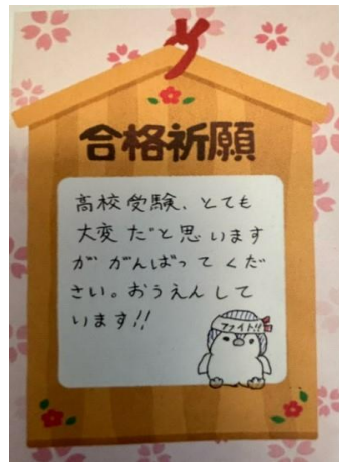 合格祈願
高校受験、とても
大変だと思います
ががんばってくだ
さい。おうえんして
います!!
ファイト!!